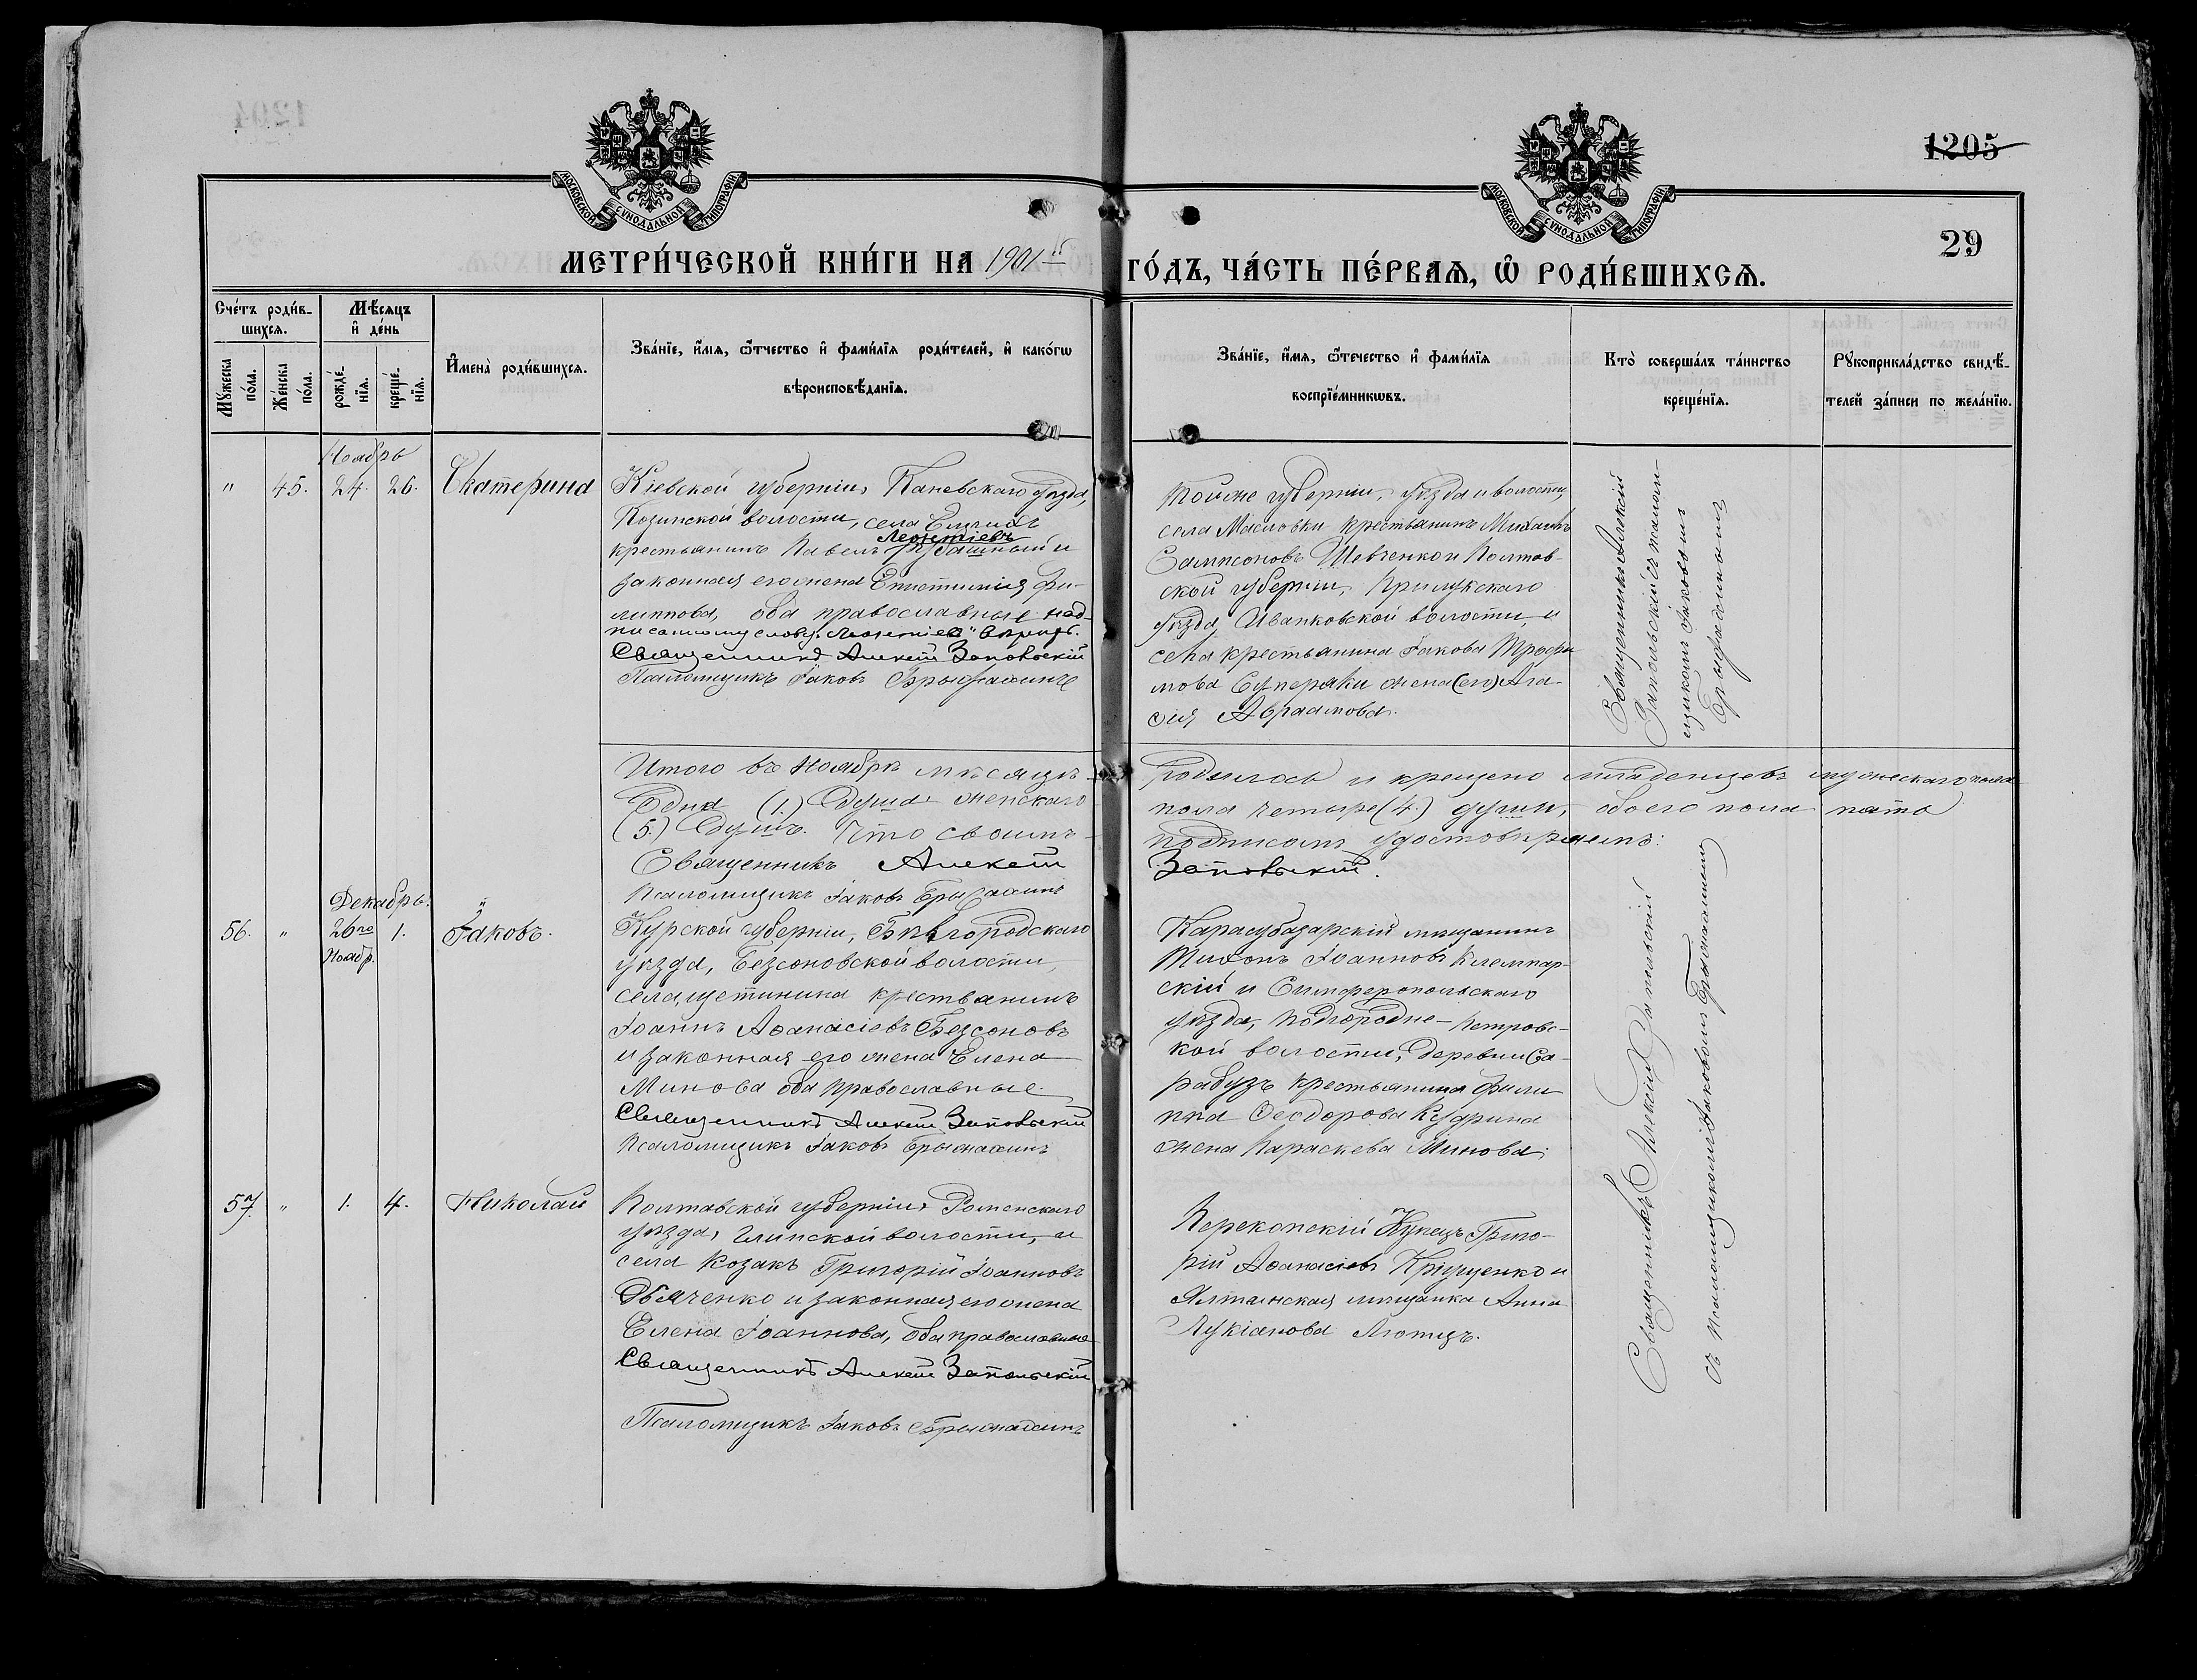 1205
29
МОСКОВСКОЙ СѴНОДАЛЬНОЙ ТИПОГРАФІИ
МОСКОВСКОЙ СѴНОДАЛЬНОЙ ТИПОГРАФІИ
МЕТРИ́ЧЕСКОЙ КНИ́ГИ НА 1901 ГО́ДЪ, ЧА́СТЬ ПЕ́РВАѦ, Ѽ РОДИ́ВШИХСѦ.
Сче́тъ роди́в-
шихсѧ.
Мꙋжеска по́ла.
Же́нска по́ла.
Мѣ́сѧцъ и де́нь
рожде́-нїѧ.
креще́-нїѧ.
И́мена̀ роди́вшихсѧ.
Зва́нїе, и́мѧ, ѻ́тчество и фами́лїѧ роди́телей, и како́гѡ
вѣроисповѣ́данїѧ.
Зва́нїе, и́мѧ, ѻ́течество и фами́лїѧ
воспрїе́мникѡвъ.
Кто̀ соверша́лъ та́инство
креще́нїѧ.
Рꙋкоприкла́дство свидѣ́-
телей за́писи по жела́нїю.
Ноябрь
" 45. 24. 26. Екатерина
Кіевской губерніи, Каневскаго уѣзда,
Козинской волости, села
Леонтіевъ
крестьянинъ Павелъ и
законная его жена Епистимія Фи-
липпова, оба православные. Над-
писанному слову „Леонтіевъ" вѣрить.
Священникъ Алексій Запольскій
Псаломщикъ Іаковъ
Тойже губерніи, уѣзда и волости,
села Масловки крестьянинъ Михаилъ
Сампсоновъ Шевченко и Полтав-
ской губерніи, Прилукскаго
уѣзда, Иванковской волости, и
села крестьянина Іакова Трофи
мова жена (его) Ага-
ѳія Авраамова.
Священникъ Алексій
Запольскій съ псалом-
щикомъ Іаковомъ
Итого въ Ноябрѣ мѣсяцѣ родилось и крещено младенцевъ мужескаго пола
Одна (1.) душа женскаго пола четыре (4.) души, обоего пола пять
(5.) душъ. Что своимъ подписомъ удостовѣряемъ:
Священникъ Алексій Запольскій.
Псаломщикъ Іаковъ
Декабрь.
56. " 26го Ноябр. 1. Іаковъ.
Курской губерніи, Бѣлгородскаго
уѣзда, Безсоновской волости,
села Щетинина крестьянинъ
Іоаннъ Аѳанасіевъ Безсоновъ
и законная его жена Елена
Минова оба православные.
Священникъ Алексій Запольскій
Псаломщикъ Іаковъ
Карасубазарскій мѣщанинъ
Тихонъ Іоанновъ
скій и Симферопольскаго
уѣзда, Подгородне-Петровс-
кой волости, деревни Са-
рабузъ крестьянина Фили
ппа Ѳеодорова Кудрина
жена Параскева Минова.
57. " 1. 4. Николай
Полтавской губерніи, Роменскаго
уѣзда, Глинской волости, и
села козакъ Григорій Іоанновъ
Дьяченко и законная его жена
Елена Іоаннова, оба православные
Священникъ Алексій Запольскій
Псаломщикъ Іаковъ
Перекопскій Купецъ Григо-
рій Аѳанасіевъ Крущенко и
Ялтинская мѣщанка Анна
Лукіанова
Священникъ Алексій Запольскій
съ псаломщикомъ Іаковомъ